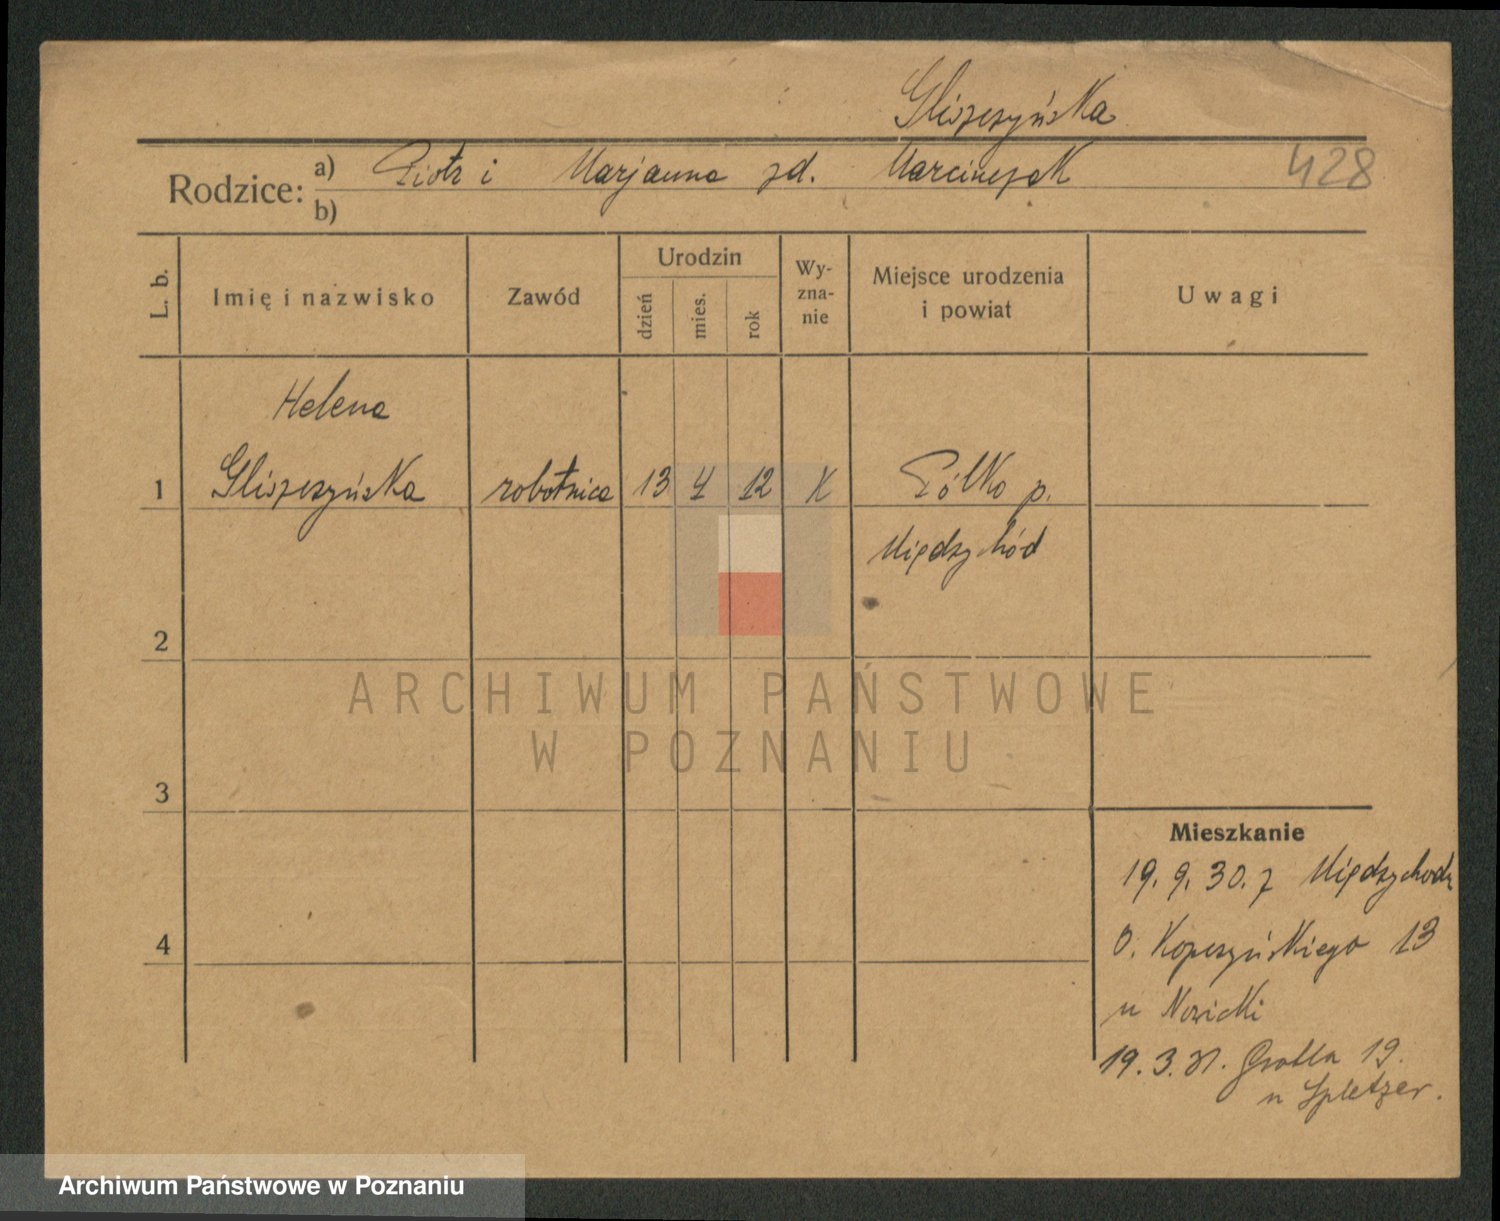 Gliszczyńska
Rodzice: a) Piotr i Marjanna zd. Marcinczak 428
b)
L. b. Imię i nazwisko Zawód Urodzin dzień mies. rok Wyznanie Miejsce urodzenia i powiat Uwagi
Helena
1 Gliszczyńska robotnica 13 4 12 K Pólko p.
Międzychód
2
ARCHIWUM PAŃSTWOWE
W POZNANIU
3
Mieszkanie
19. 9. 30. z Międzychodu
4
O. Kopczyńskiego 13
u Nowicki
19. 3. 31. Grobla 19.
u Spletzer.
Archiwum Państwowe w Poznaniu